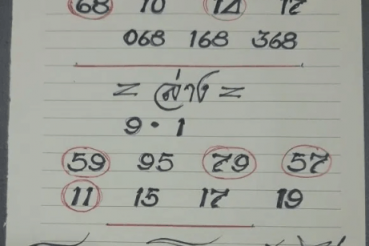 68 10 14 17
068 168 368
= ล่าง =
9 · 1
59 95 79 57
11 15 17 19